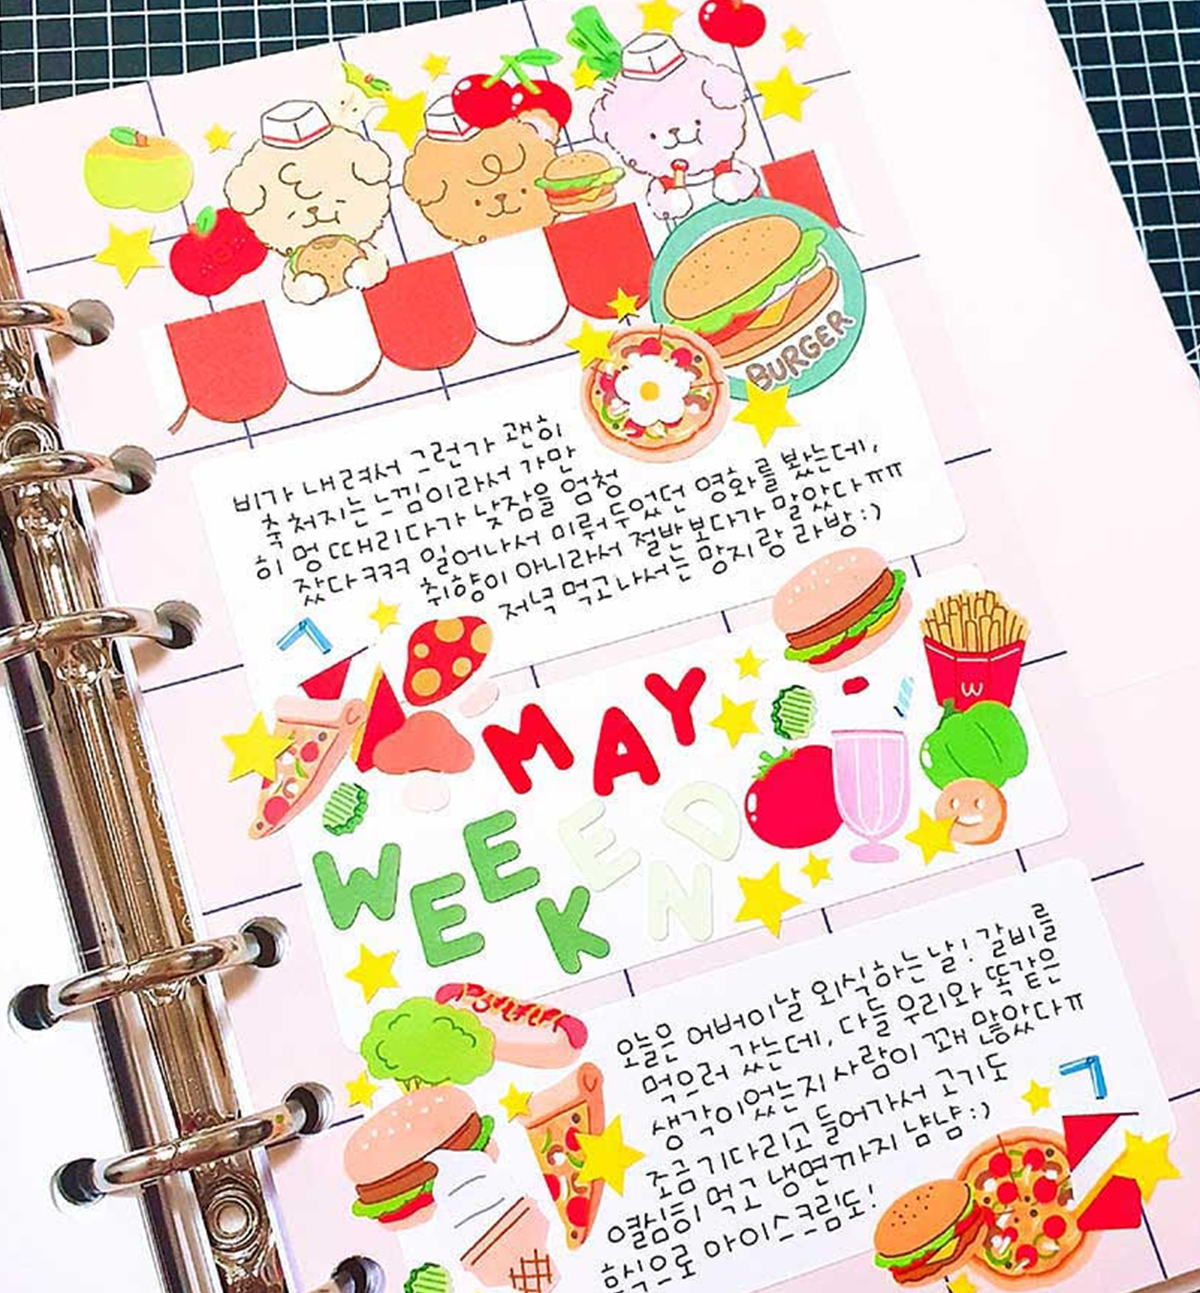 BURGER
비가 내려서 그런가 괜히
축 처지는 느낌이라서 가만
히 멍 때리다가 낮잠을 엄청
잤다ㅋㅋㅋ 일어나서 미뤄두었던 영화를 봤는데,
취향이 아니라서 절반보다가 말았다ㅠㅠ
저녁 먹고나서는 망지랑 라방:)
W
MAY
WEEKEND
오늘은 어버이날 외식하는날! 갈비를
먹으러 갔는데, 다들 우리와 똑같은
생각이었는지 사람이 꽤 많았다ㅠ
조금 기다리고 들어가서 고기도
열심히 먹고 냉면까지 냠냠:)
후식으로 아이스크림도!